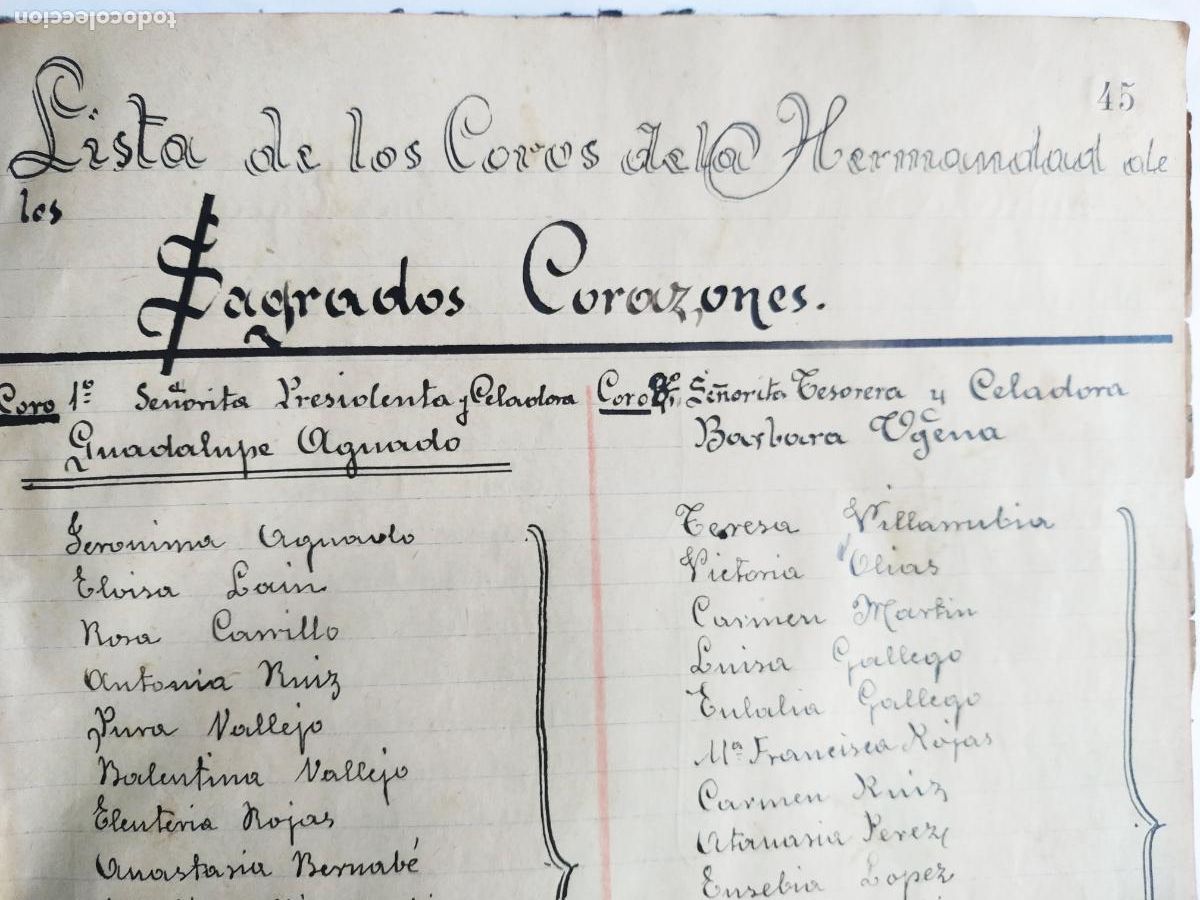 todocoleccion
45
Lista de los Coros de la Hermandad de
los
Sagrados Corazones.
Coro 1º Señorita Presidenta y Celadora
Guadalupe Aguado
Jeronima Aguado
Eloisa Lain
Rosa Carrillo
Antonia Ruiz
Pura Vallejo
Balentina Vallejo
Eleuteria Rojas
Anastasia Bernabé
Coro Señorita Tesorera y Celadora
Barbara Ugena
Teresa Villarrubia
Victoria Olias
Carmen Martin
Luisa Gallego
Eulalia Gallego
Mª Francisca Rojas
Carmen Ruiz
Atanasia Perez
Eusebia Lopez